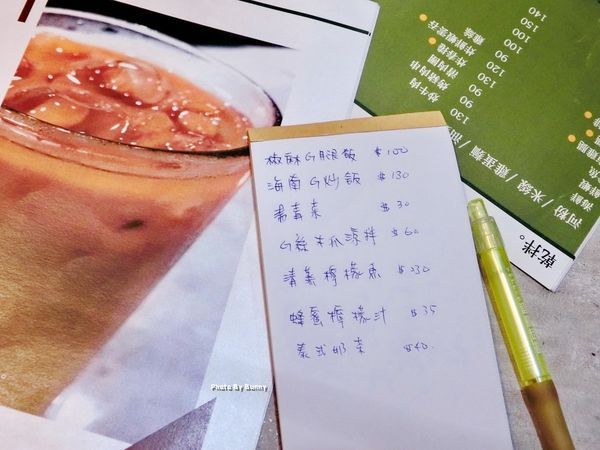 椒麻G腿飯 $100
海南G灶飯 $130
燙青菜 $30
G絲木瓜涼拌 $60
清蒸檸檬魚 $230
蜂蜜檸檬汁 $35
泰式奶茶 $40
Photo By Bunny
乾拌。
河粉/米線/雞蛋麵/
炒牛肉 130
90
90
130
120
90
100
100
150
140